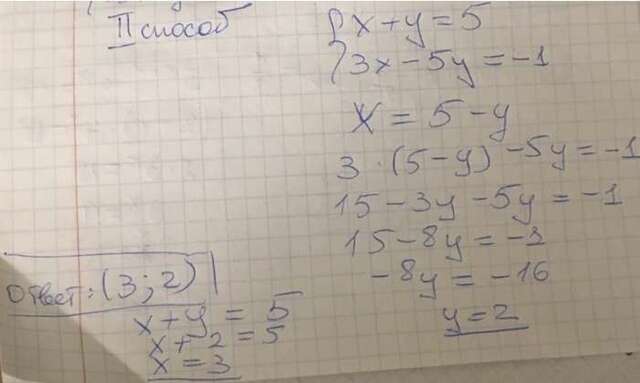 II способ
{ x + y = 5
3x - 5y = -1
x = 5 - y
3 · (5 - y) - 5y = -1
15 - 3y - 5y = -1
15 - 8y = -1
-8y = -16
y = 2
x + y = 5
x + 2 = 5
x = 3
Ответ: (3; 2)